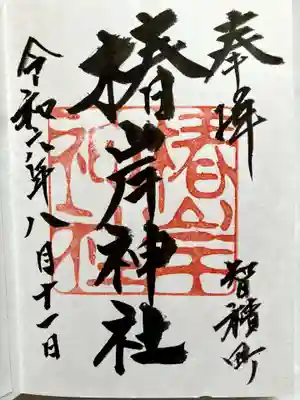 奉拝
智積町
椿岸神社
令和六年八月十一日
椿岸
神社